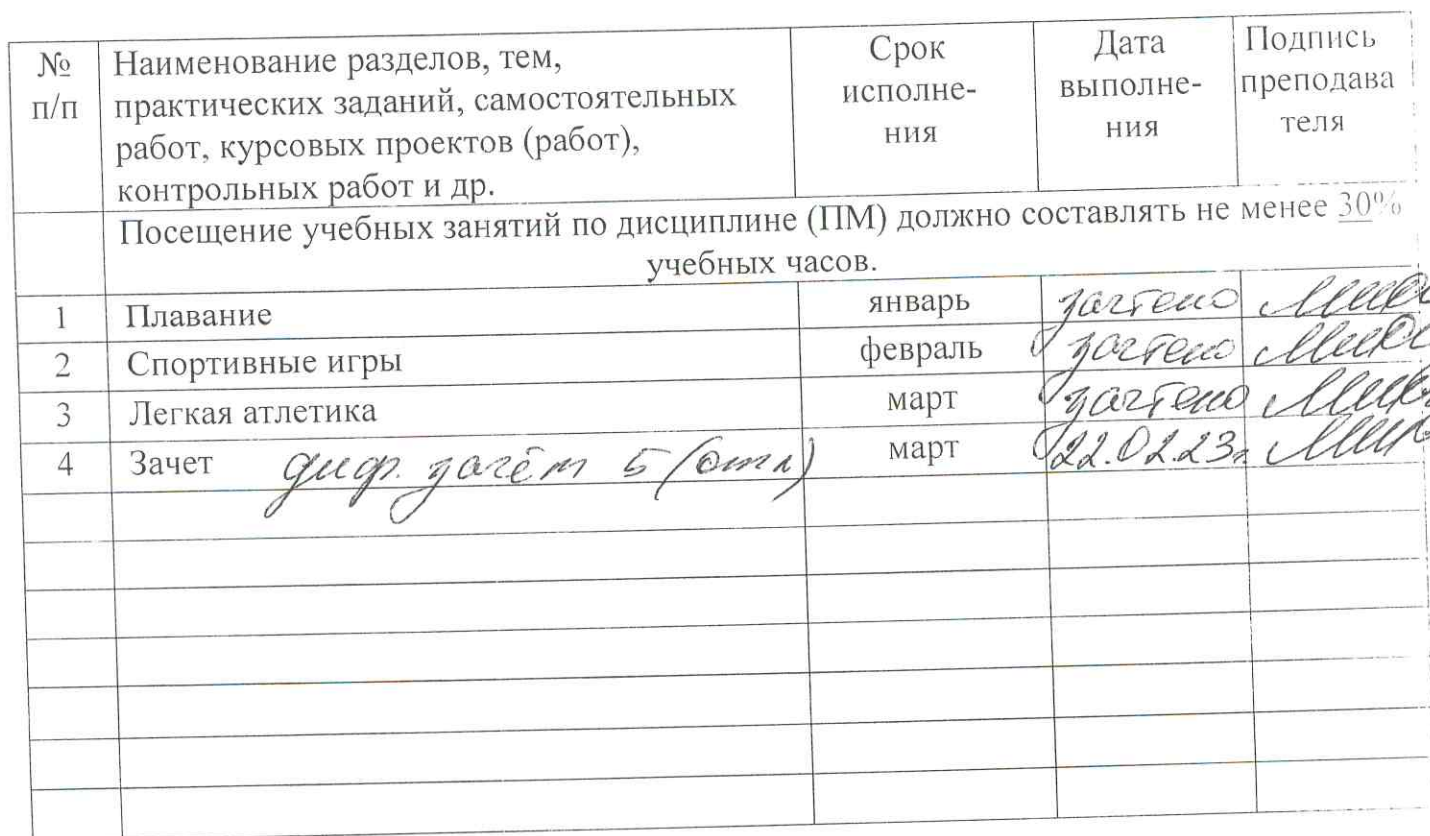 № п/п
Наименование разделов, тем,
практических заданий, самостоятельных
работ, курсовых проектов (работ),
контрольных работ и др.
Срок
исполне-
ния
Дата
выполне-
ния
Подпись
преподава
теля
Посещение учебных занятий по дисциплине (ПМ) должно составлять не менее 30%
учебных часов.
1 Плавание январь зачтено
2 Спортивные игры февраль зачтено
3 Легкая атлетика март зачтено
4 Зачет диф. зачёт 5 (отл) март 22.02.23г